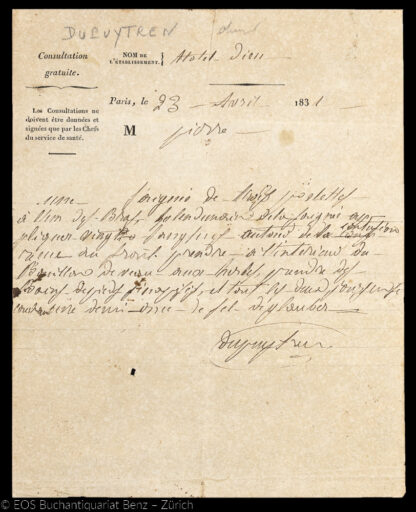 DUPUYTREN
Consultation
gratuite.
NOM DE
L'ÉTABLISSEMENT.
hotel Dieu
Les Consultations ne
doivent être données et
signées que par les Chefs
du service de santé.
Paris, le 23 Avril 1831
M pierre
une saignée de trois palettes
à l'un des bras, le lendemain de la saignée ap
pliquer vingt sangsues autour de la
prendre à l'intérieur du
Bouillon de veau aux herbes, prendre des
Bains de pieds sinapisés et tout les deux jours
une demi once de sel de glauber
dupuytren
© EOS Buchantiquariat Benz – Zürich